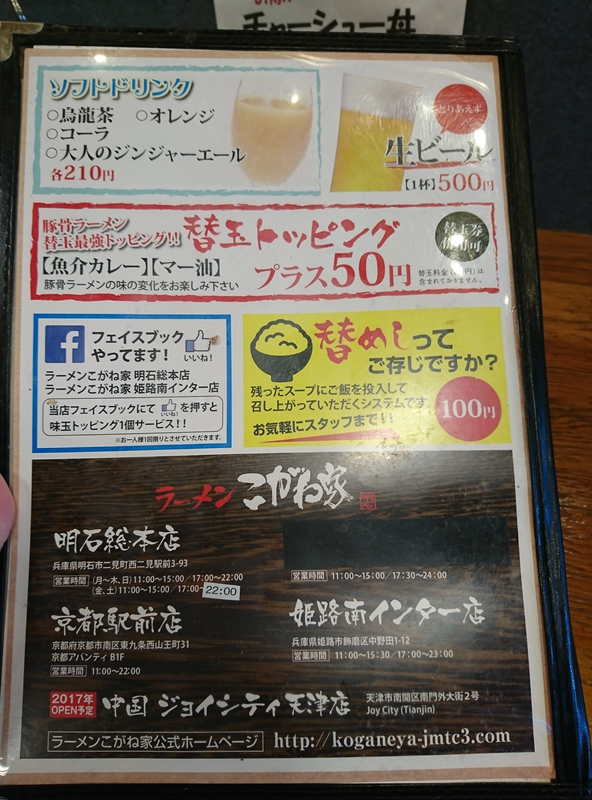 チャーシュー丼
ソフトドリンク
○烏龍茶 ○オレンジ
○コーラ
○大人のジンジャーエール
各210円
とりあえず
生ビール
【1杯】500円
豚骨ラーメン
替玉最強トッピング!!
替玉トッピング
【魚介カレー】【マー油】
プラス50円
豚骨ラーメンの味の変化をお楽しみ下さい
替玉券
使用可
含まれておりません。
フェイスブック
やってます!
いいね!
ラーメンこがね家 明石総本店
ラーメンこがね家 姫路南インター店
当店フェイスブックにて いいね! を押すと
味玉トッピング1個サービス!!
※お一人様1回限りとさせていただきます。
替めしって
ご存じですか?
残ったスープにご飯を投入して
召し上がっていただくシステムです
お気軽にスタッフまで!!
100円
ラーメン こがね家
明石総本店
兵庫県明石市二見町西二見駅前3-93
営業時間 (月〜木、日)11:00〜15:00/17:00〜22:00
(金、土)11:00〜15:00/17:00〜22:00
営業時間 11:00〜15:00/17:30〜24:00
京都駅前店
京都府京都市南区東九条西山王町31
京都アバンティ B1F
営業時間 11:00〜22:00
姫路南インター店
兵庫県姫路市飾磨区中野田1-12
営業時間 11:00〜15:30/17:00〜23:00
2017年
OPEN予定
中国 ジョイシティ天津店
天津市南開区南門外大街2号
Joy City (Tianjin)
ラーメンこがね家公式ホームページ http://koganeya-jmtc3.com